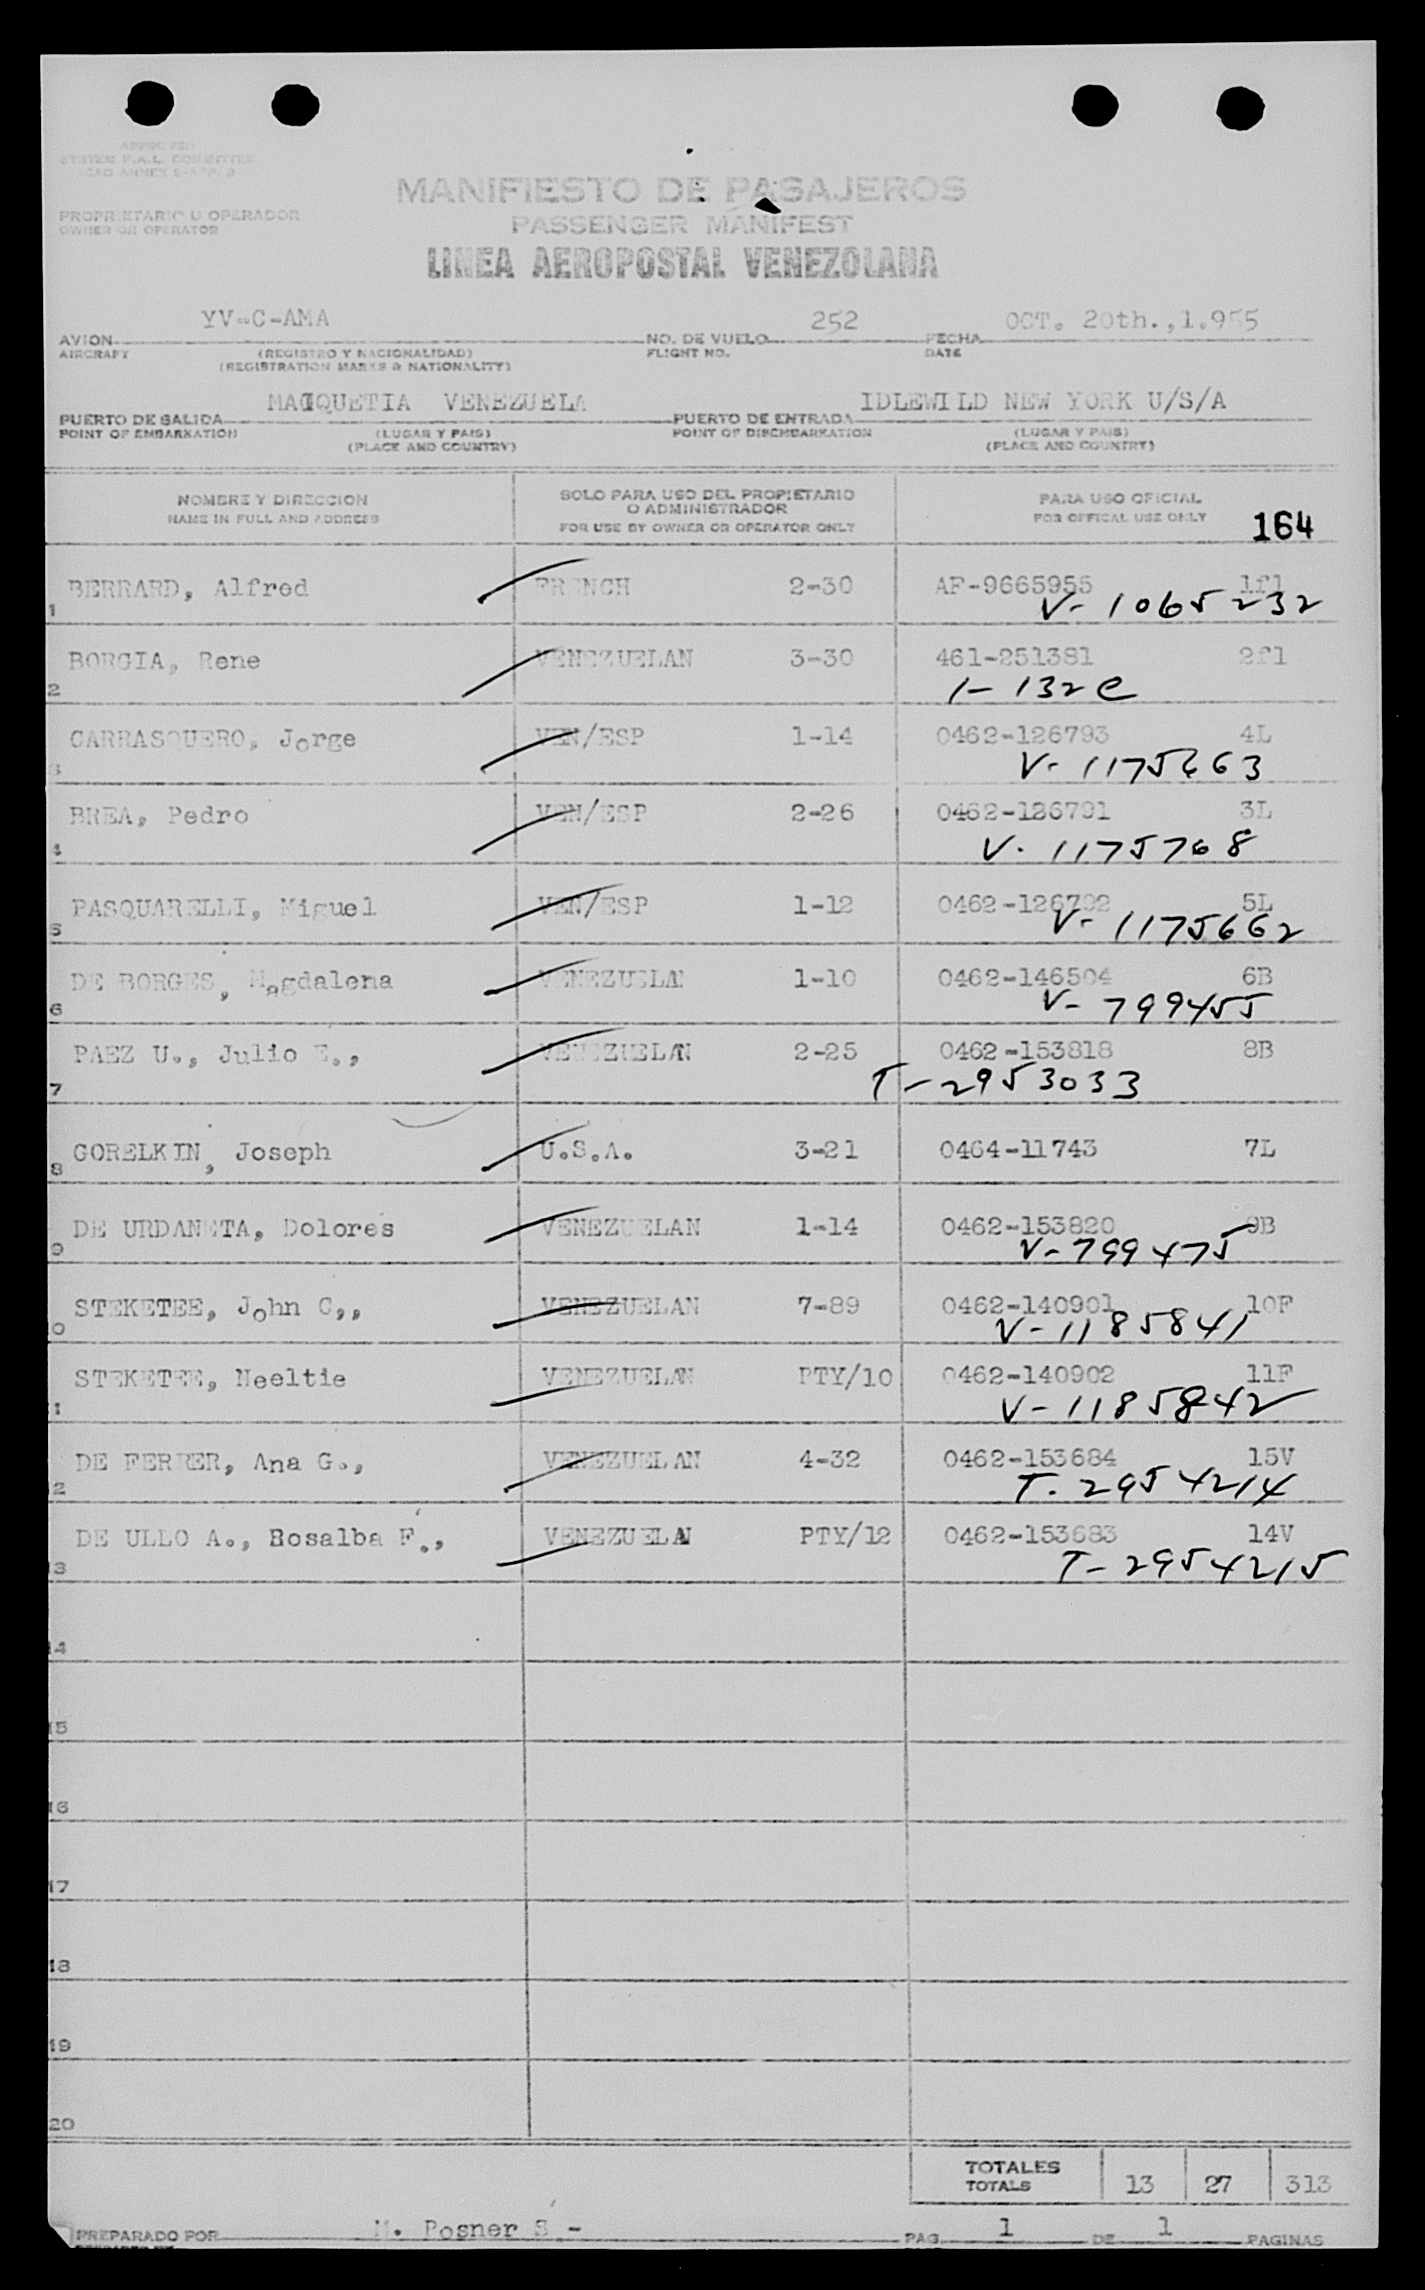 APPROVED
SYSTEM F.A.L. COMMITTEE
ICAO ANNEX 9-APP. 2
MANIFIESTO DE PASAJEROS
PROPRIETARIO U OPERADOR
PASSENGER MANIFEST
OWNER OR OPERATOR
LINEA AEROPOSTAL VENEZOLANA
YV-C-AMA 252 OCT. 20th.,1.955
AVION NO. DE VUELO FECHA
AIRCRAFT (REGISTRO Y NACIONALIDAD) FLIGHT NO. DATE
(REGISTRATION MARKS & NATIONALITY)
MAIQUETIA VENEZUELA IDLEWILD NEW YORK U/S/A
PUERTO DE SALIDA PUERTO DE ENTRADA
POINT OF EMBARKATION (LUGAR Y PAIS) POINT OF DISEMBARKATION (LUGAR Y PAIS)
(PLACE AND COUNTRY) (PLACE AND COUNTRY)
NOMBRE Y DIRECCION SOLO PARA USO DEL PROPIETARIO PARA USO OFICIAL
O ADMINISTRADOR
NAME IN FULL AND ADDRESS FOR USE BY OWNER OR OPERATOR ONLY FOR OFFICAL USE ONLY 164
BERRARD, Alfred FRENCH 2-30 AF-9665955 1fl
1 V- 1065232
BORGIA, Rene VENEZUELAN 3-30 461-251381 2fl
2 1-132C
CARRASQUERO, Jorge VEN/ESP 1-14 0462-126793 4L
3 V- 1175663
BREA, Pedro VEN/ESP 2-26 0462-126791 3L
4 V. 1175768
PASQUARELLI, Miguel VEN/ESP 1-12 0462-126792 5L
5 V- 1175662
DE BORGES, Magdalena VENEZUELAN 1-10 0462-146504 6B
6 V- 799455
PAEZ U., Julio E., VENEZUELAN 2-25 0462-153818 8B
7 T-2953033
GORELKIN, Joseph U.S.A. 3-21 0464-11743 7L
8
DE URDANETA, Dolores VENEZUELAN 1-14 0462-153820 9B
9 V-799475
STEKETEE, John C,, VENEZUELAN 7-89 0462-140901 10F
10 V-1185841
STEKETEE, Neeltie VENEZUELAN PTY/10 0462-140902 11F
11 V-1185842
DE FERRER, Ana G., VENEZUELAN 4-32 0462-153684 15V
12 T. 2954214
DE ULLO A., Rosalba F., VENEZUELAN PTY/12 0462-153683 14V
13 T-2954215
14
15
16
17
18
19
20
TOTALES
TOTALS 13 27 313
PREPARADO POR M. Posner S.- PAG. 1 DE 1 PAGINAS